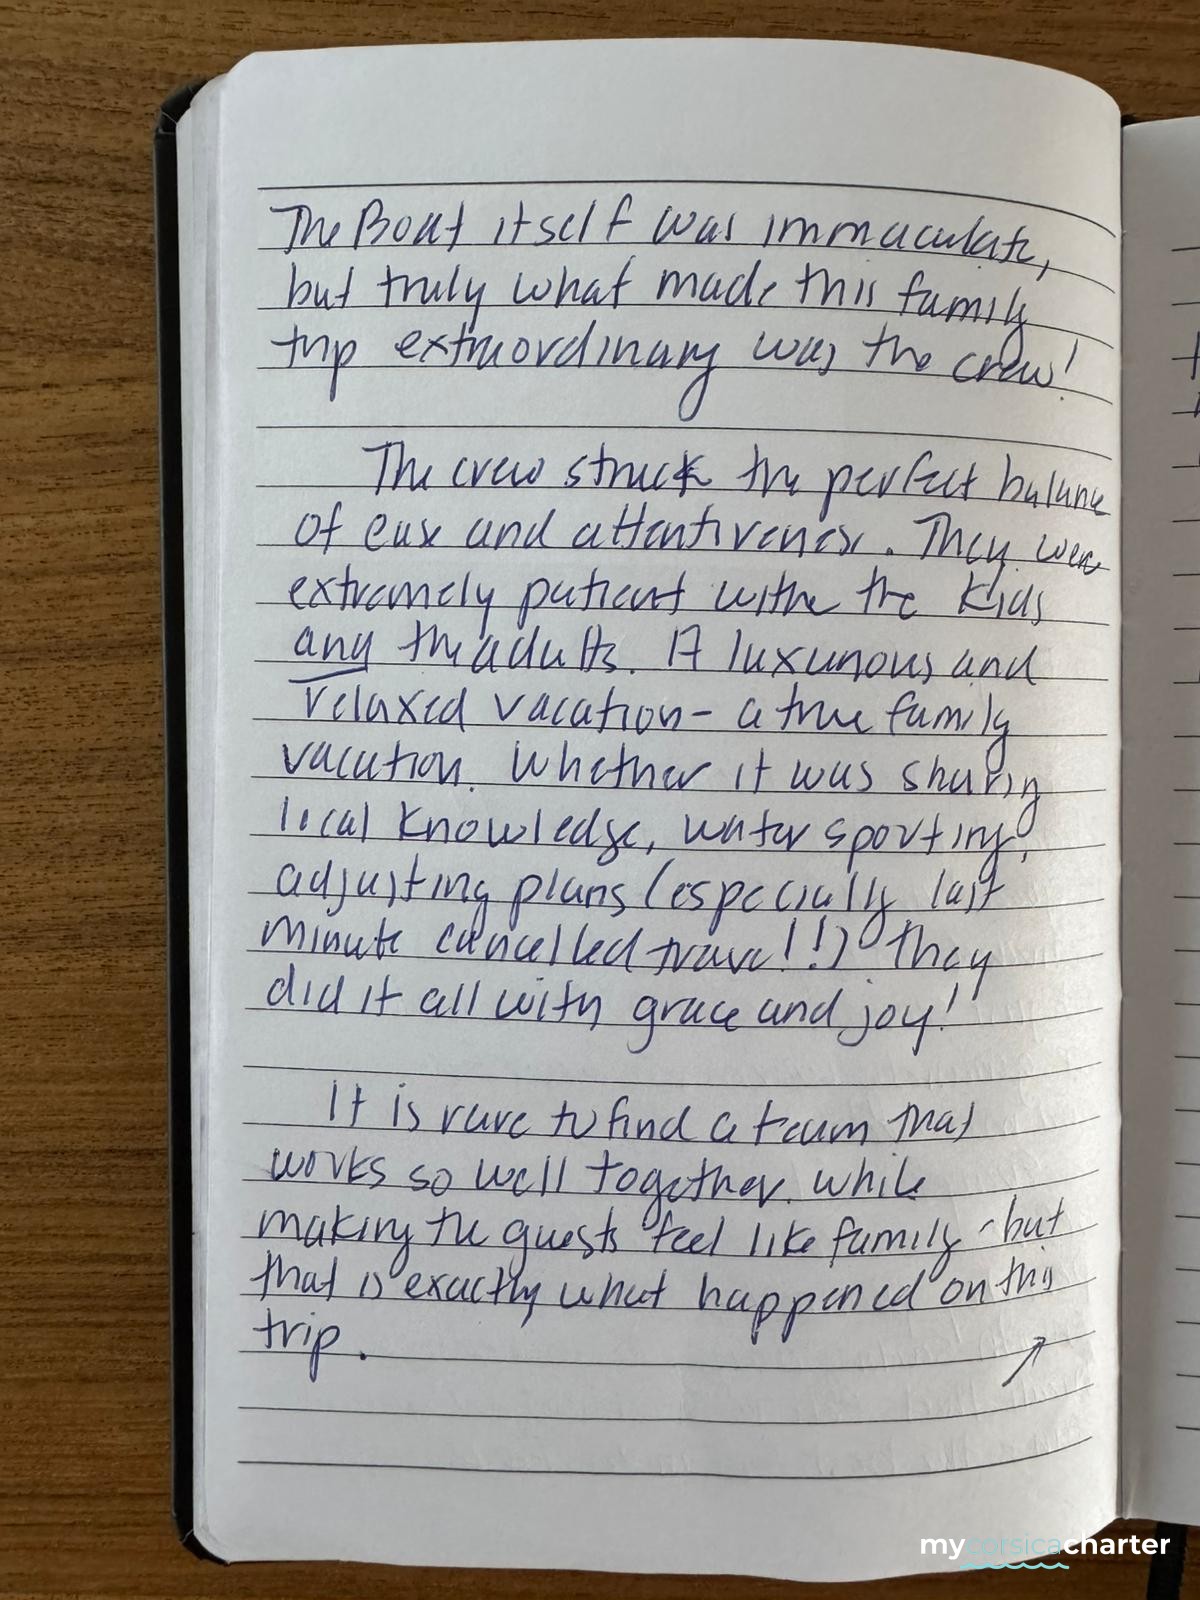 The Boat itself was immaculate,
but truly what made this family
trip extraordinary was the crew!
The crew struck the perfect balance
of ease and attentiveness. They were
extremely patient withe the kids
and the adults. A luxurious and
relaxed vacation - a true family
vacation. Whether it was sharing
local knowledge, water sporting,
adjusting plans (especially last
minute cancelled travel!!) they
did it all with grace and joy!
It is rare to find a team that
works so well together while
making the guests feel like family - but
that is exactly what happened on this
trip.
mycorsicacharter